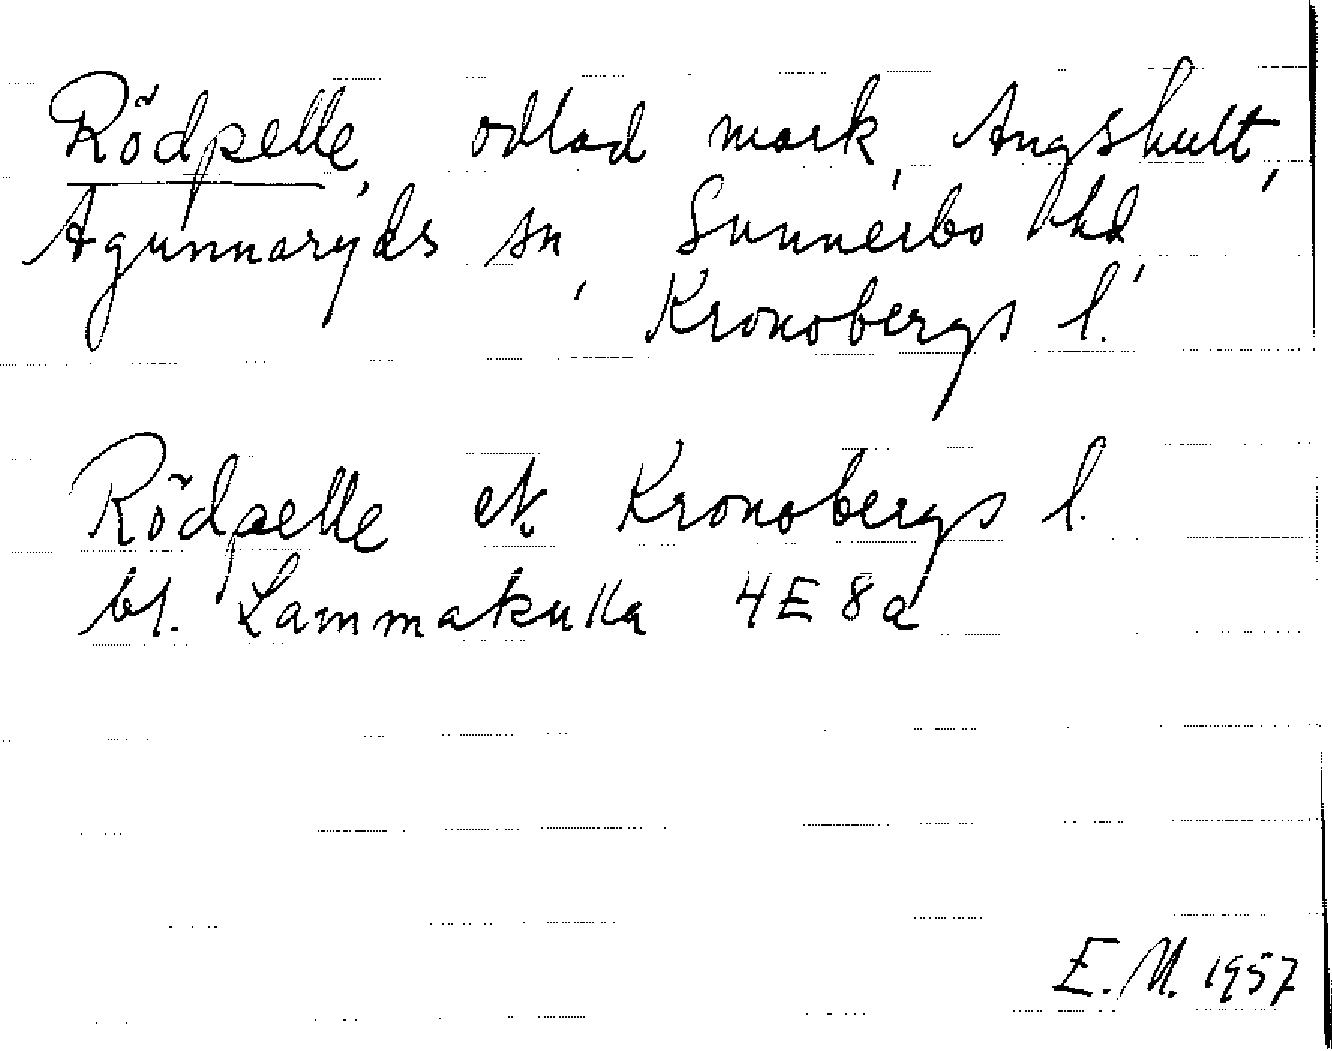 Rödpelle, odlad mark, Angshult,
Agunnaryds sn, Sunnerbo hd,
Kronobergs l.
Rödpelle ek. Kronobergs l.
bl. Lammakulla 4E8a
E.M. 1957